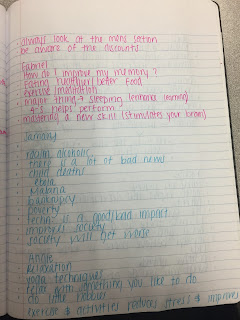 always look at the mens section
be aware of the discounts
Gabriel
How do I improve my memory?
Eating healthier/better food
exercise/meditation
major thing → sleeping (enhance learning)
4-5 helps perform
mastering a new skill (stimulates your brain)
alcoholic
there is a lot of bad news
child deaths
ebola
Malaria
bankrupcy
poverty
techn. is a good/bad impact
society
society will get worse
Annie
Relaxation
yoga techniques
relax with something you like to do
do little hobbies
exercise & activities reduces stress & improves